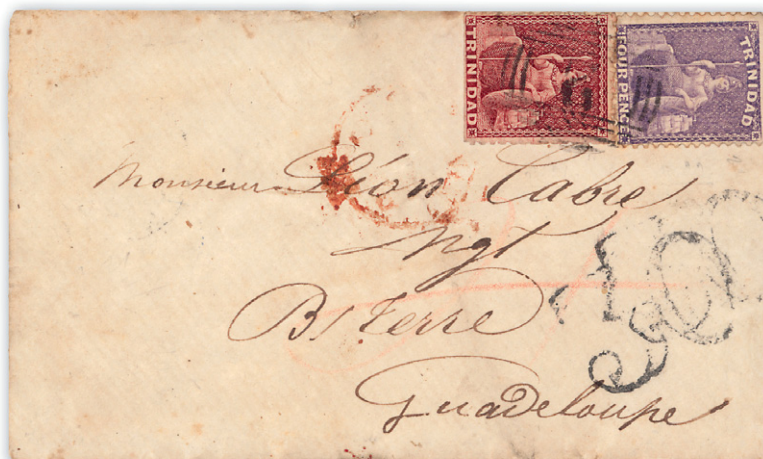 TRINIDAD
FOUR PENCE
TRINIDAD
Monsieur Léon Cabre
Ngt
Bs Terre
Guadeloupe